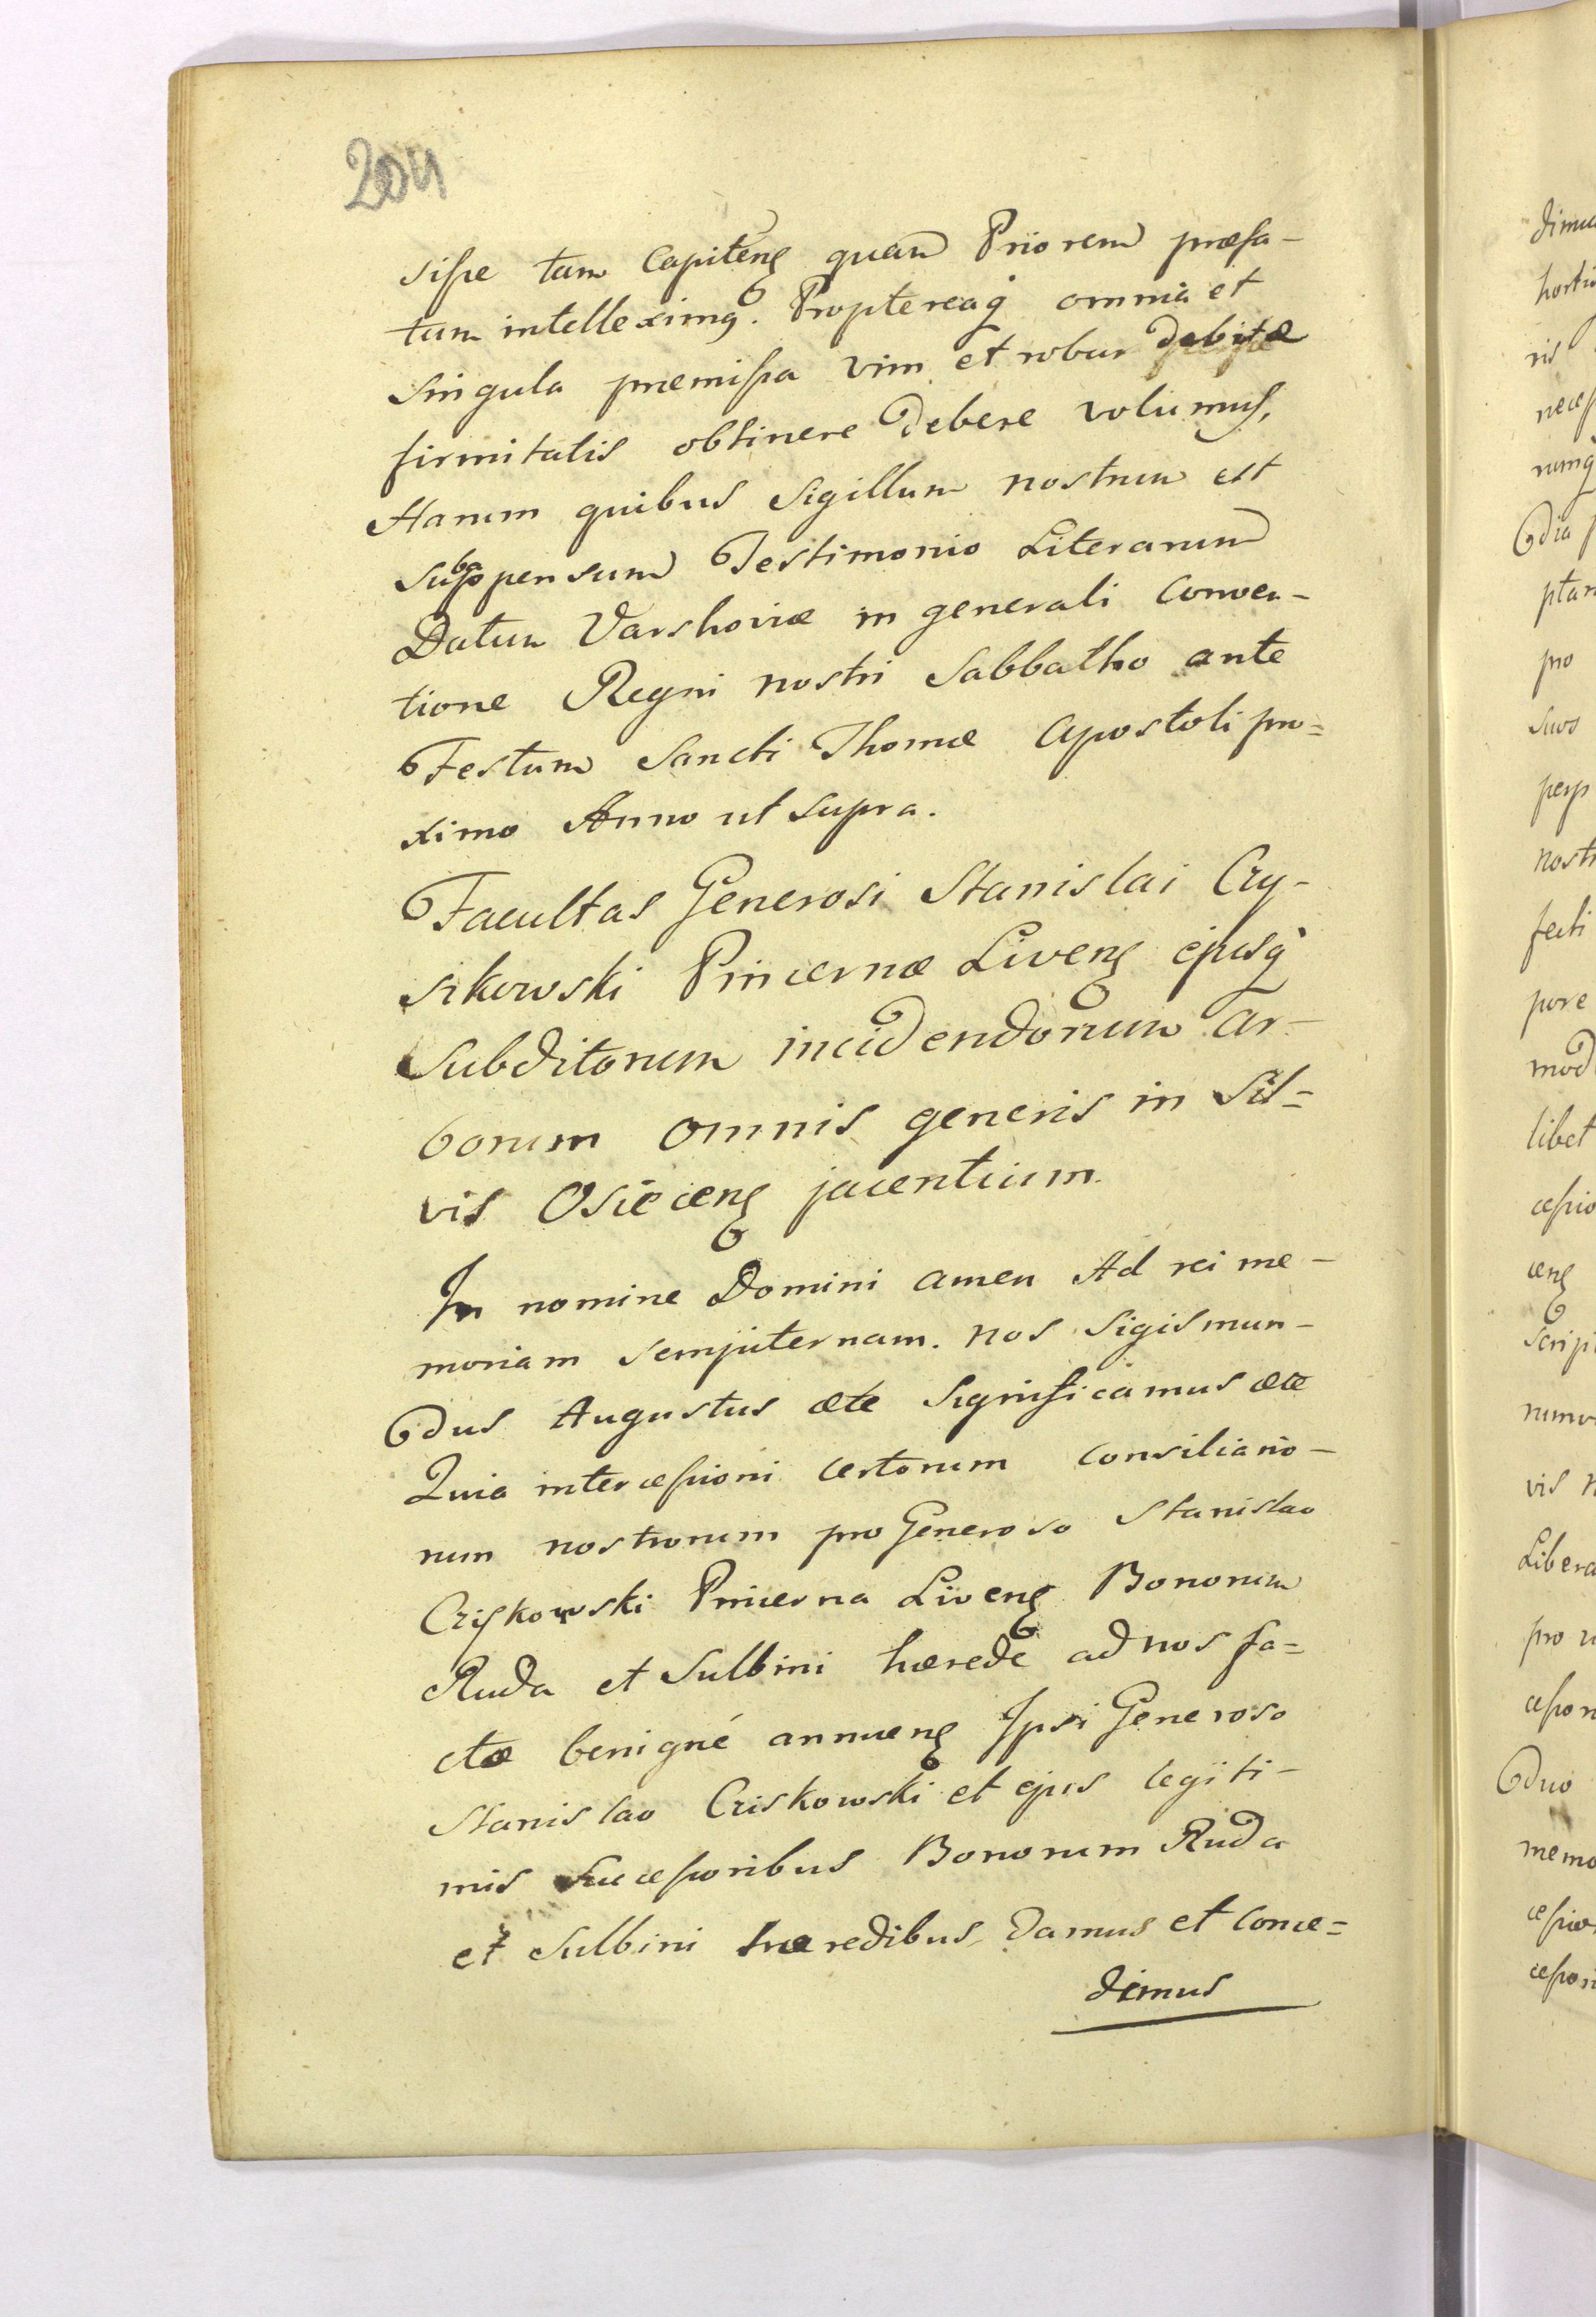 204
siſse tam Capiteng quam Priorem præfa-
tum intelleximg. Propterea q omnia et
singula præmiſsa vim et robur debitæ
firmitatis obtinere debere volumus,
Harum quibus sigillum nostrum est
subappensum Testimonio Literarum
Datum Varshoviæ in generali conven-
tione Regni nostri Sabbatho ante
Festum Sancti Thomæ Apostoli pro=
ximo Anno ut supra.
Facultas Generosi Stanislai Cry-
sikowski Pincernæ Liveng ejusq
Subditorum incidendorum ar-
borum omnis generis in Sil=
vis Osieceng jacentium.
In nomine Domini amen Ad rei me-
moriam sempiternam. nos Sigismun-
dus Augustus etc Significamus etc
Quia interceſsioni certorum consiliario-
rum nostrorum pro Generoso Stanislao
Criskowski Pincerna Liveng Bonorum
Ruda et Sulbini hærede ad nos fa=
ctæ benigné annueng Ipsi Generoso
Stanislao Criskowski et ejus legiti-
mis Succeſsoribus Bonorum Ruda
et Sulbini hæredibus, Damus et conce=
dimus
dimu
horti
ris
neceſ
rumq
dia p
ptan
pro
suos
perp
nostr
fecti
pore
mod
libet
ceſsio
ceng
Scripi
numo
vis n
Libera
pro u
ceſson
duo
memo
ceſsio
ceſson